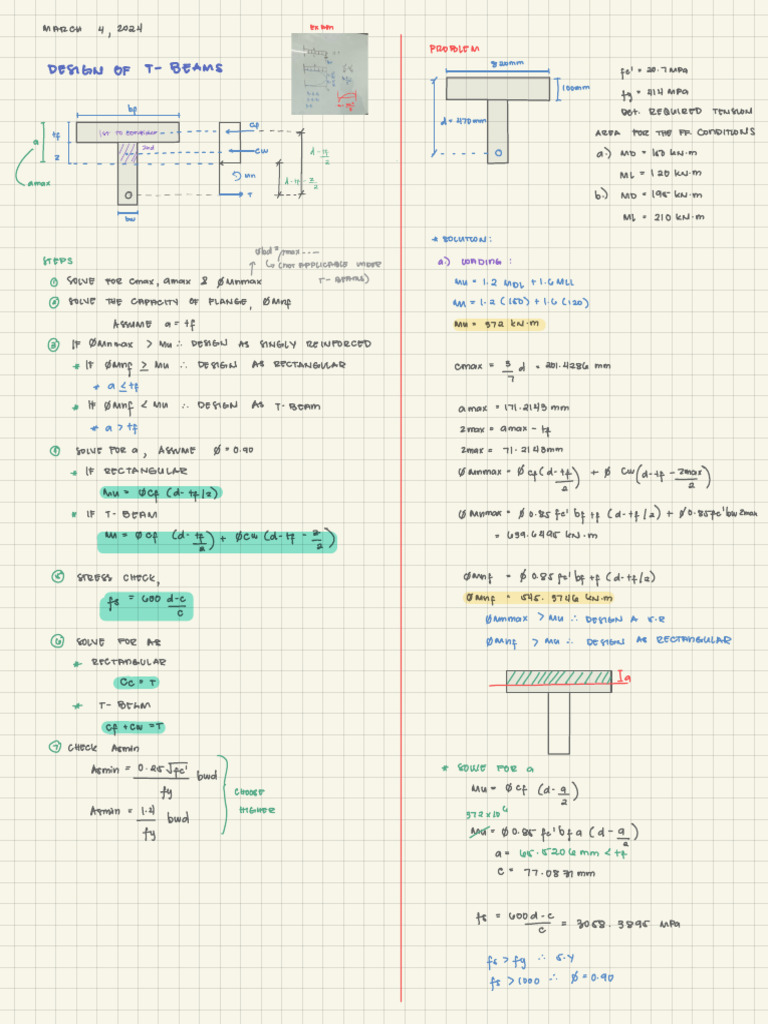 MARCH 4, 2024
DESIGN OF T-BEAMS
bf
Cf
tf
1ST TO
2nd
a
z
Cw
d-tf/2
Mn
d-tf-z/2
amax
T
bw
STEPS
(not APPLICABLE UNDER
T-BEAMS)
① SOLVE FOR Cmax, amax & ØMnmax
② SOLVE THE CAPACITY OF FLANGE, ØMnf
ASSUME a = tf
③ IF ØMnmax > Mu ∴ DESIGN AS SINGLY REINFORCED
* If ØMnf ≥ Mu ∴ DESIGN AS RECTANGULAR
* a ≤ tf
* If ØMnf < Mu ∴ DESIGN AS T-BEAM
* a > tf
SOLVE FOR a, ASSUME Ø = 0.90
* IF RECTANGULAR
Mu = ØCf (d-tf/2)
* IF T-BEAM
Mu = ØCf (d-tf/2) + ØCw (d-tf-z/2)
⑤ STRESS CHECK,
fs = 600 d-c/c
⑥ SOLVE FOR As
* RECTANGULAR
Cc = T
* T-BEAM
Cf + Cw = T
⑦ CHECK Asmin
Asmin = 0.25√fc'/fy bwd
Asmin = 1.4/fy bwd
CHOOSE
HIGHER
PROBLEM
820mm
100mm
d = 470mm
fc' = 20.7 MPa
fy = 414 MPa
DET. REQUIRED TENSION
AREA FOR THE FF CONDITIONS
a.) MD = 150 kN.m
ML = 120 kN.m
b.) MD = 195 kN.m
ML = 210 kN.m
* SOLUTION:
a.) LOADING:
Mu = 1.2 MDL + 1.6 MLL
Mu = 1.2 (150) + 1.6 (120)
Mu = 372 kN.m
Cmax = 3/7 d = 201.4286 mm
amax = 171.2143 mm
zmax = amax - tf
zmax = 71.2143mm
ØMnmax = ØCf (d-tf/2) + ØCw (d-tf-zmax/2)
ØMnmax = Ø0.85 fc' bf tf (d-tf/2) + Ø0.85fc'bw zmax
= 659.6495 kN.m
ØMnf = Ø0.85 fc' bf tf (d-tf/2)
ØMnf = 545.3746 kN.m
ØMnmax > Mu ∴ DESIGN A S.R
ØMnf > Mu ∴ DESIGN AS RECTANGULAR
a
* SOLVE FOR a
Mu = ØCf (d-a/2)
372x10⁶
Mu = Ø0.85 fc' bf a (d-a/2)
a = 65.5206 mm < tf
c = 77.0831 mm
fs = 600 d-c/c = 3058.3895 MPa
fs > fy ∴ S.Y
fs > 1000 ∴ Ø = 0.90